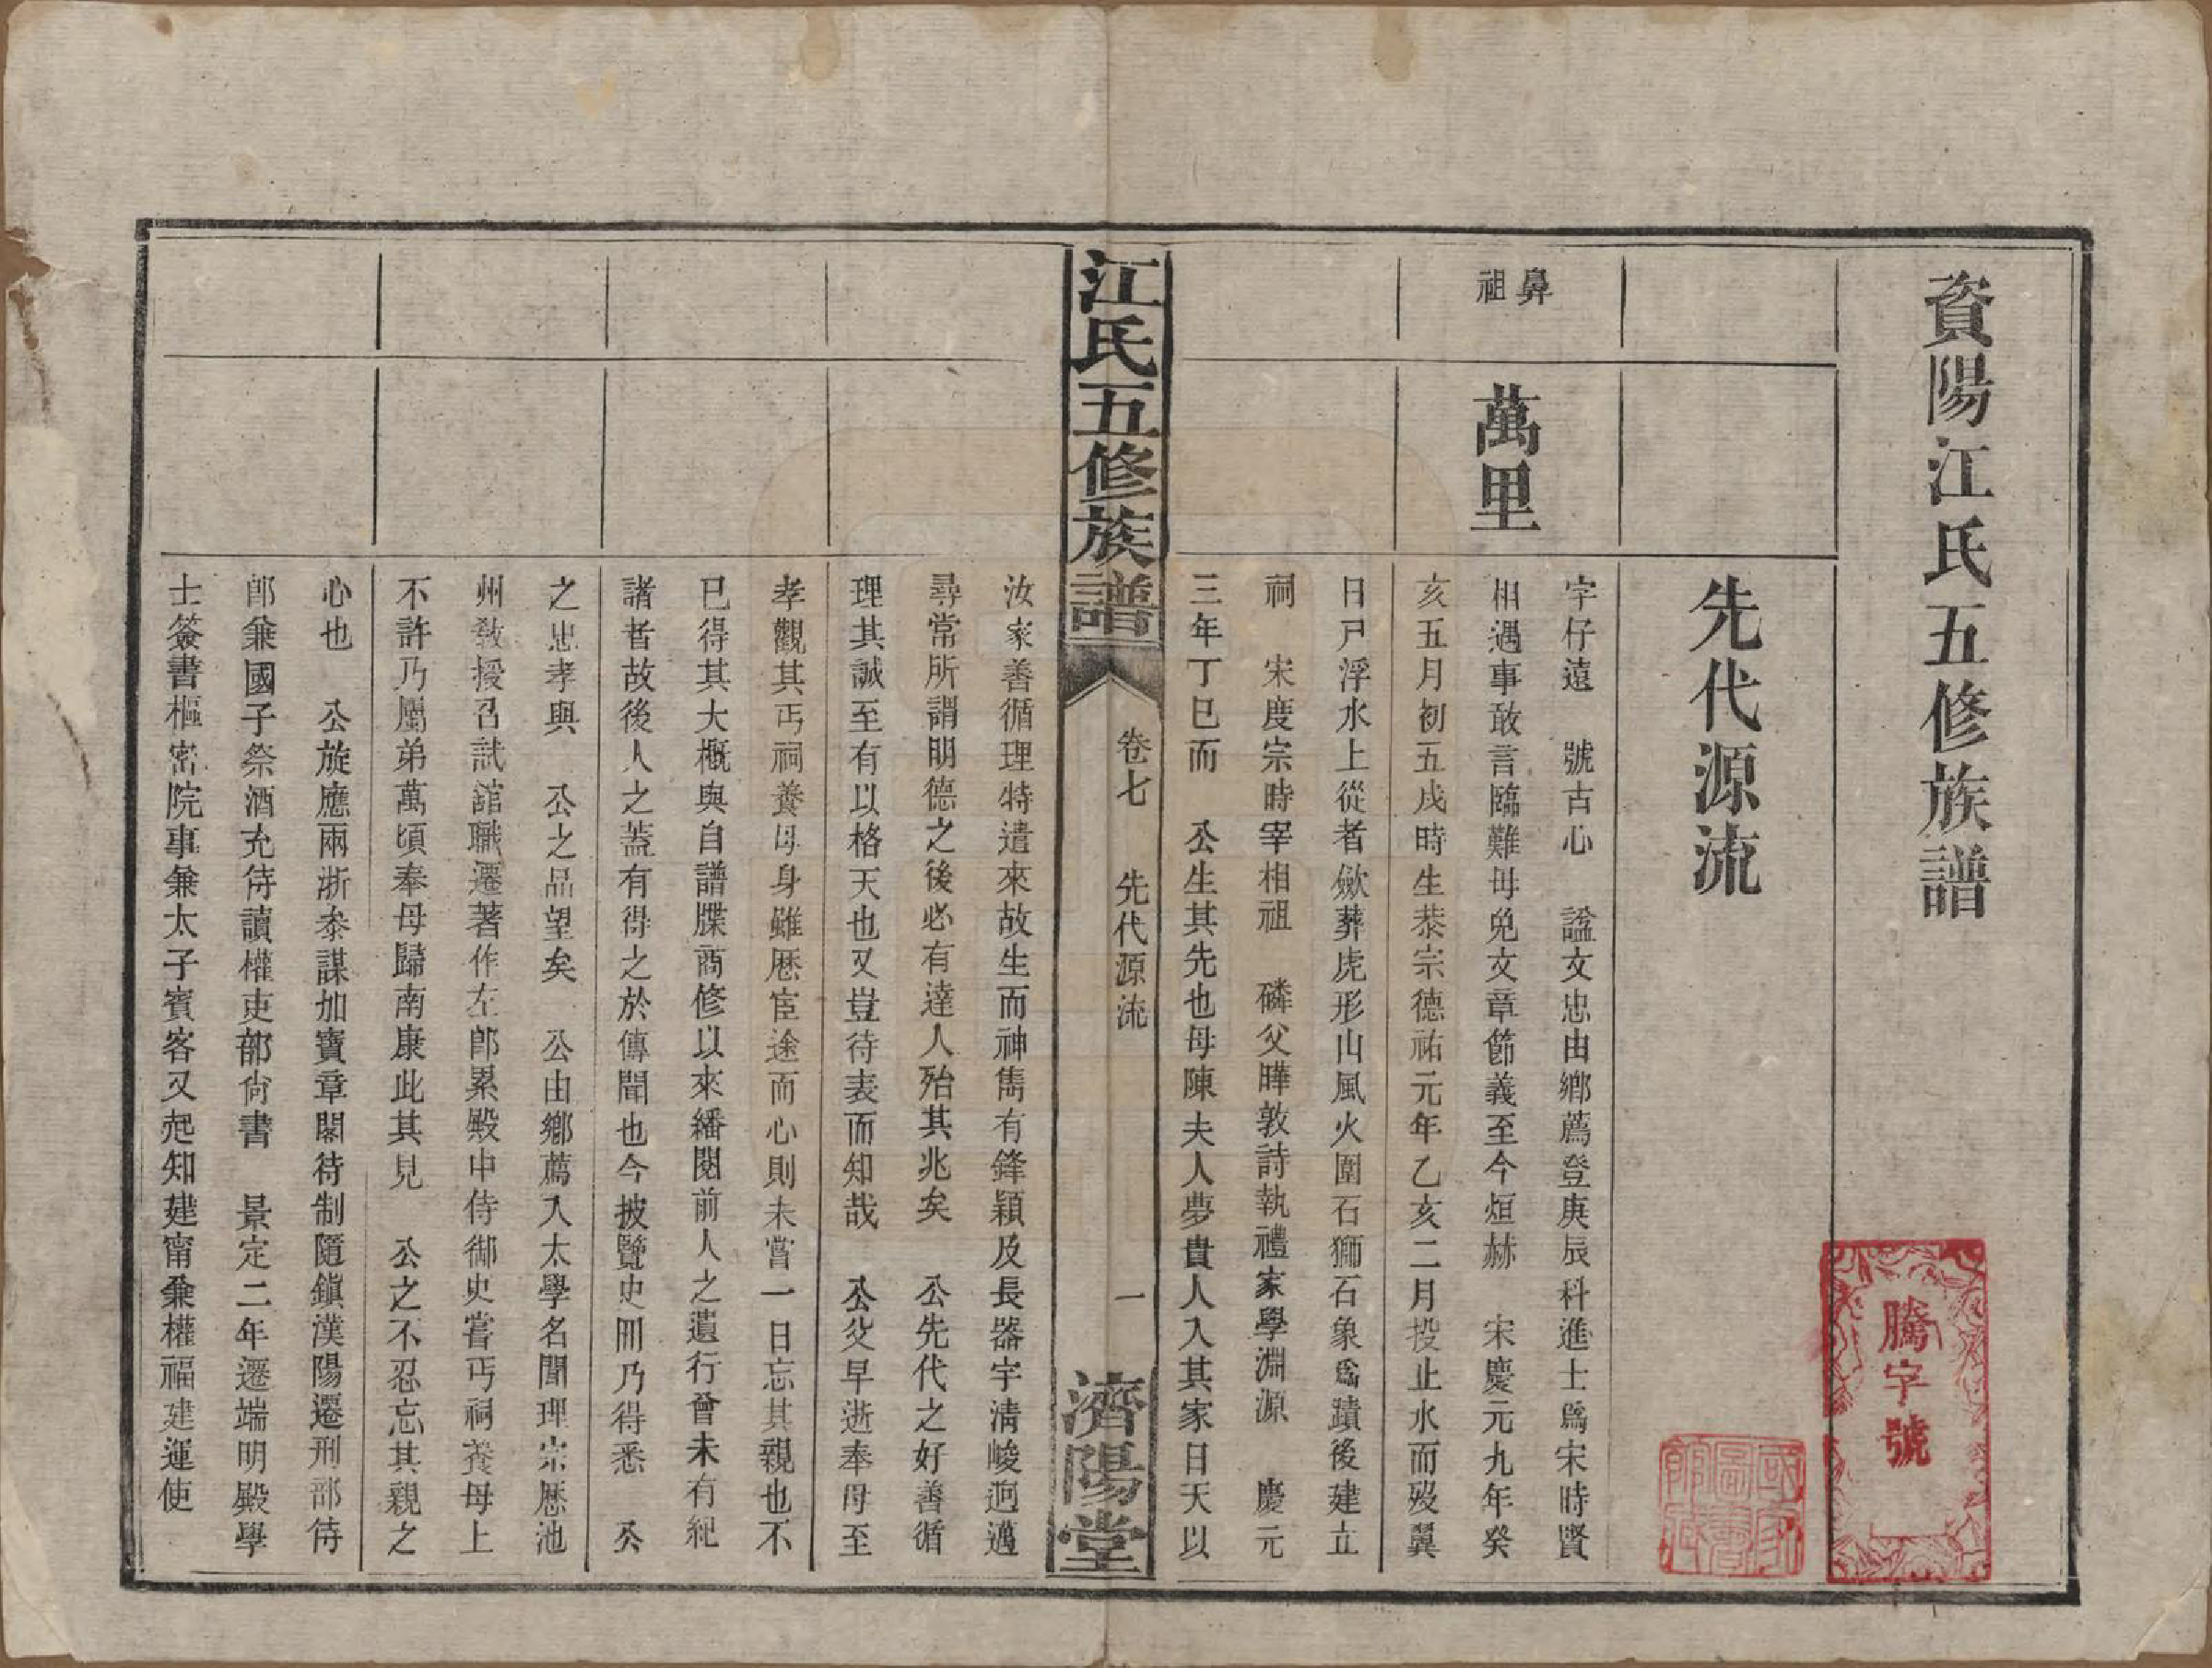 資陽江氏五修族譜
先代源流
鼻祖
萬里
字仔遠 號古心 諡文忠由鄉薦登庚辰科進士爲宋時賢
相遇事敢言臨難毋免文章節義至今烜赫 宋慶元九年癸
亥五月初五戌時生恭宗德祐元年乙亥二月投止水而歿翼
日尸浮水上從者斂葬虎形山風火圍石獅石象爲蹟後建立
祠 宋度宗時宰相祖 磷父曄敦詩執禮家學淵源 慶元
三年丁巳而 公生其先也母陳夫人夢貴人入其家日天以
江氏五修族譜
卷七 先代源流 一
濟陽堂
汝家善循理特遣來故生而神雋有鋒穎及長器宇清峻迥邁
尋常所謂明德之後必有達人殆其兆矣 公先代之好善循
理其誠至有以格天也又豈待表而知哉 公父早逝奉母至
孝觀其丐祠養母身雖歷宦途而心則未嘗一日忘其親也不
已得其大概與自譜牒商修以來繙閱前人之遺行曾未有紀
諸者故後人之蓋有得之於傳聞也今披覽史冊乃得悉 公
之忠孝與 公之品望矣 公由鄉薦入太學名聞理宗歷池
州敎授召試舘職遷著作左郎累殿中侍御史嘗丐祠養母上
不許乃屬弟萬頃奉母歸南康此其見 公之不忍忘其親之
心也 公旋應兩浙叅謀加寶章閣待制隨鎭漢陽遷刑部侍
郎兼國子祭酒充侍讀權吏部尙書 景定二年遷端明殿學
士簽書樞密院事兼太子賓客又起知建甯兼權福建運使
騰字號
國家圖書館